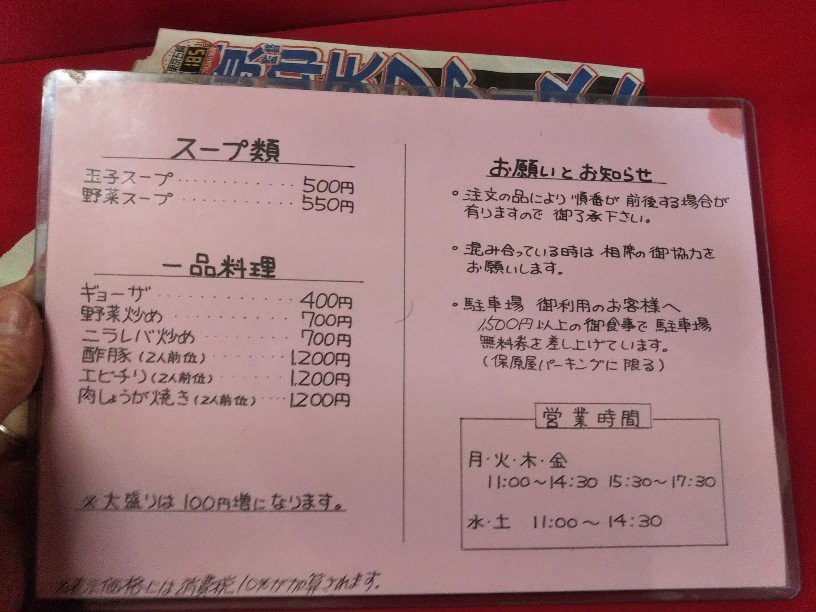 スープ類
玉子スープ ············ 500円
野菜スープ ············ 550円
一品料理
ギョーザ ············ 400円
野菜炒め ············ 700円
ニラレバ炒め ········· 700円
酢豚(2人前位) ········ 1,200円
エビチリ(2人前位) ······ 1,200円
肉しょうが焼き(2人前位) ··· 1,200円
※大盛りは100円増になります。
価格には消費税10%が加算されます。
お願いとお知らせ
・注文の品により順番が前後する場合が
有りますので御了承下さい。
・混み合っている時は相席の御協力を
お願いします。
・駐車場御利用のお客様へ
1,500円以上の御食事で駐車場
無料券を差し上げています。
(保原屋パーキングに限る)
営業時間
月・火・木・金
11:00～14:30 15:30～17:30
水・土 11:00～14:30